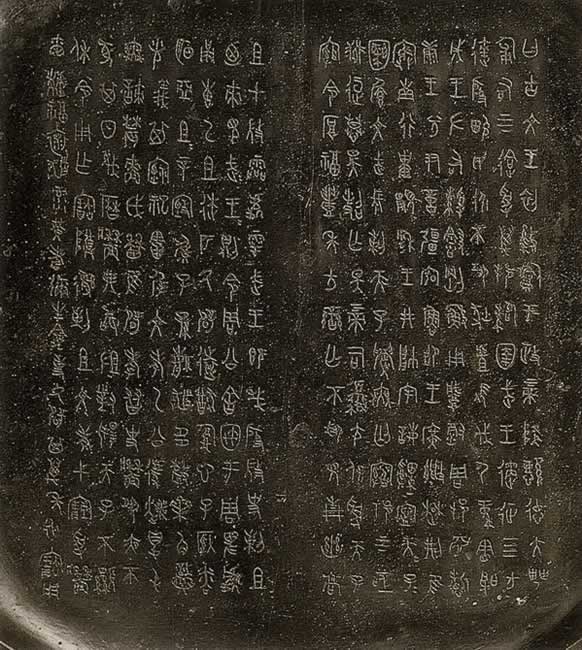 曰古文王初盭龢于政上帝降懿德大甹
匍有上下迨受萬邦䚄圉武王遹征四方
達殷畯民永不巩狄虘髟伐尸童憲聖
成王左右綬䋣剛鯀用肇徹周邦淵哲
康王分尹啻彊宏魯邵王廣楚荊隹
寏南行祗顯穆王井帥宇誨申寧天子
天子圝文武長剌天子眉無匄上下
亟獄逗慕昊照亡斁上帝司夒尪保受天子
綰令厚福豐年方蠻亡不見青幽高
且才微霝處雩武王既𢦏殷微史剌且
廼來見武王武王則令周公舍㝢于周卑處甬
叀乙且逑匹氒辟遠猷腹心子粦
明亞且且辛毓子孫多釐角光
義其禋祀害屖文考乙公遽爽得屯
無諫農嗇戉歷隹辟孝友史墻夙夜不
㒸其日蔑歷墻弗敢沮對揚天子不顯
休令用乍寶尊彝剌且文考弋受墻
爾福懷祿黃耇彌生龕事氒辟其萬年永寶用